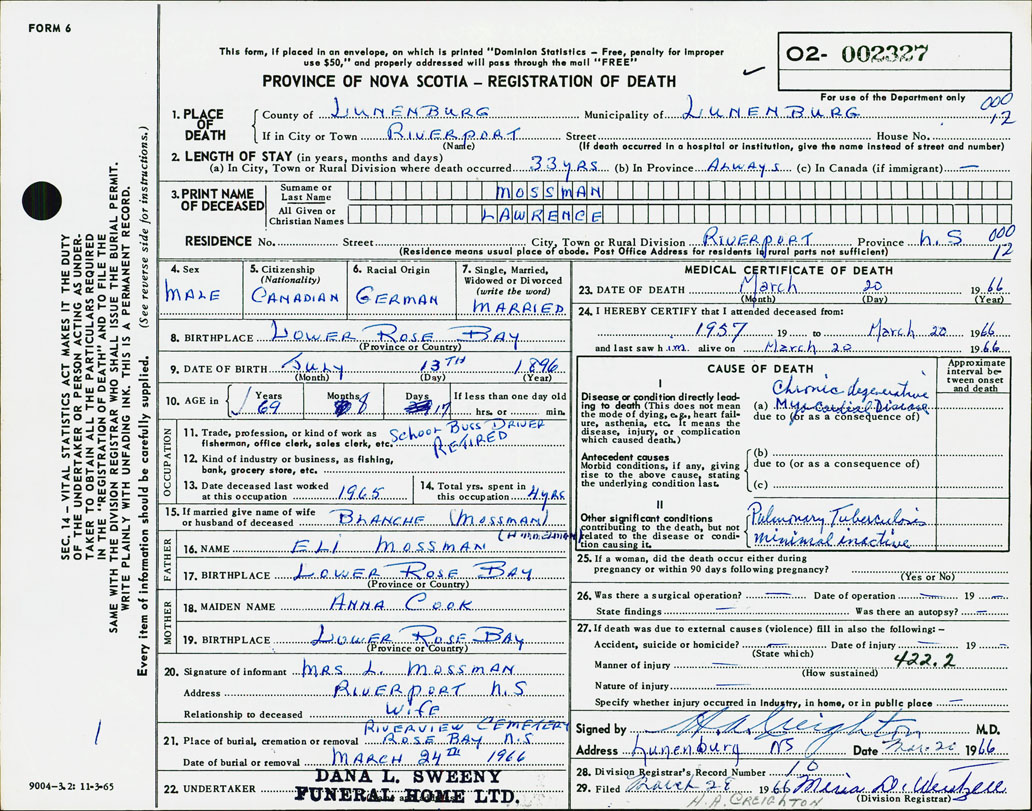 FORM 6
This form, if placed in an envelope, on which is printed "Dominion Statistics – Free, penalty for improper
use $50," and properly addressed will pass through the mail "FREE"
PROVINCE OF NOVA SCOTIA – REGISTRATION OF DEATH
02- 002327
For use of the Department only
000
12
1. PLACE OF DEATH County of LUNENBURG Municipality of LUNENBURG
If in City or Town RIVERPORT Street House No.
(Name) (If death occurred in a hospital or institution, give the name instead of street and number)
2. LENGTH OF STAY (in years, months and days)
(a) In City, Town or Rural Division where death occurred 33 YRS (b) In Province ALWAYS (c) In Canada (if immigrant) —
3. PRINT NAME OF DECEASED Surname or Last Name MOSSMAN
All Given or Christian Names LAWRENCE
RESIDENCE No. Street City, Town or Rural Division RIVERPORT Province N.S 000
12
(Residence means usual place of abode. Post Office Address for residents in rural parts not sufficient)
4. Sex MALE
5. Citizenship (Nationality) CANADIAN
6. Racial Origin GERMAN
7. Single, Married, Widowed or Divorced (write the word) MARRIED
8. BIRTHPLACE LOWER ROSE BAY
(Province or Country)
9. DATE OF BIRTH JULY 13TH 1896
(Month) (Day) (Year)
10. AGE in Years 69 Months 8 Days 17 If less than one day old
hrs. or min.
OCCUPATION
11. Trade, profession, or kind of work as fisherman, office clerk, sales clerk, etc. SCHOOL BUSS DRIVER
RETIRED
12. Kind of industry or business, as fishing, bank, grocery store, etc.
13. Date deceased last worked at this occupation 1965
14. Total yrs. spent in this occupation 4 YRS
15. If married give name of wife or husband of deceased BLANCHE (MOSSMAN)
FATHER
16. NAME ELI MOSSMAN
17. BIRTHPLACE LOWER ROSE BAY
(Province or Country)
MOTHER
18. MAIDEN NAME ANNA COOK
19. BIRTHPLACE LOWER ROSE BAY
(Province or Country)
20. Signature of informant MRS L. MOSSMAN
Address RIVERPORT N.S
Relationship to deceased WIFE
RIVERVIEW CEMETERY
21. Place of burial, cremation or removal ROSE BAY N.S
Date of burial or removal MARCH 24TH 1966
22. UNDERTAKER DANA L. SWEENY
FUNERAL HOME LTD.
MEDICAL CERTIFICATE OF DEATH
23. DATE OF DEATH March 20 1966
(Month) (Day) (Year)
24. I HEREBY CERTIFY that I attended deceased from:
1957 19 to March 20 1966
and last saw him alive on March 20 1966
CAUSE OF DEATH
Approximate interval between onset and death
I
Disease or condition directly leading to death (This does not mean the mode of dying, e.g., heart failure, asthenia, etc. It means the disease, injury, or complication which caused death.)
(a) Chronic degenerative
Myocardial Disease
due to (or as a consequence of)
Antecedent causes
Morbid conditions, if any, giving rise to the above cause, stating the underlying condition last.
(b)
due to (or as a consequence of)
(c)
II
Other significant conditions contributing to the death, but not related to the disease or condition causing it.
Pulmonary Tuberculosis
minimal inactive
25. If a woman, did the death occur either during
pregnancy or within 90 days following pregnancy?
(Yes or No)
26. Was there a surgical operation? — Date of operation — 19 —
State findings — Was there an autopsy? —
27. If death was due to external causes (violence) fill in also the following:–
Accident, suicide or homicide? — Date of injury — 19
(State which)
422.2
Manner of injury —
(How sustained)
Nature of injury —
Specify whether injury occurred in industry, in home, or in public place —
Signed by H A Creighton M.D.
Address Lunenburg NS Date Mar. 1966
28. Division Registrar's Record Number 10
29. Filed March 28 1966
(Division Registrar)
H. A. CREIGHTON
SEC. 14 – VITAL STATISTICS ACT MAKES IT THE DUTY
OF THE UNDERTAKER OR PERSON ACTING AS UNDER-
TAKER TO OBTAIN ALL THE PARTICULARS REQUIRED
IN THE "REGISTRATION OF DEATH" AND TO FILE THE
SAME WITH THE DIVISION REGISTRAR WHO SHALL ISSUE THE BURIAL PERMIT.
WRITE PLAINLY WITH UNFADING INK. THIS IS A PERMANENT RECORD.
Every item of information should be carefully supplied. (See reverse side for instructions.)
9004-3.2: 11-3-65